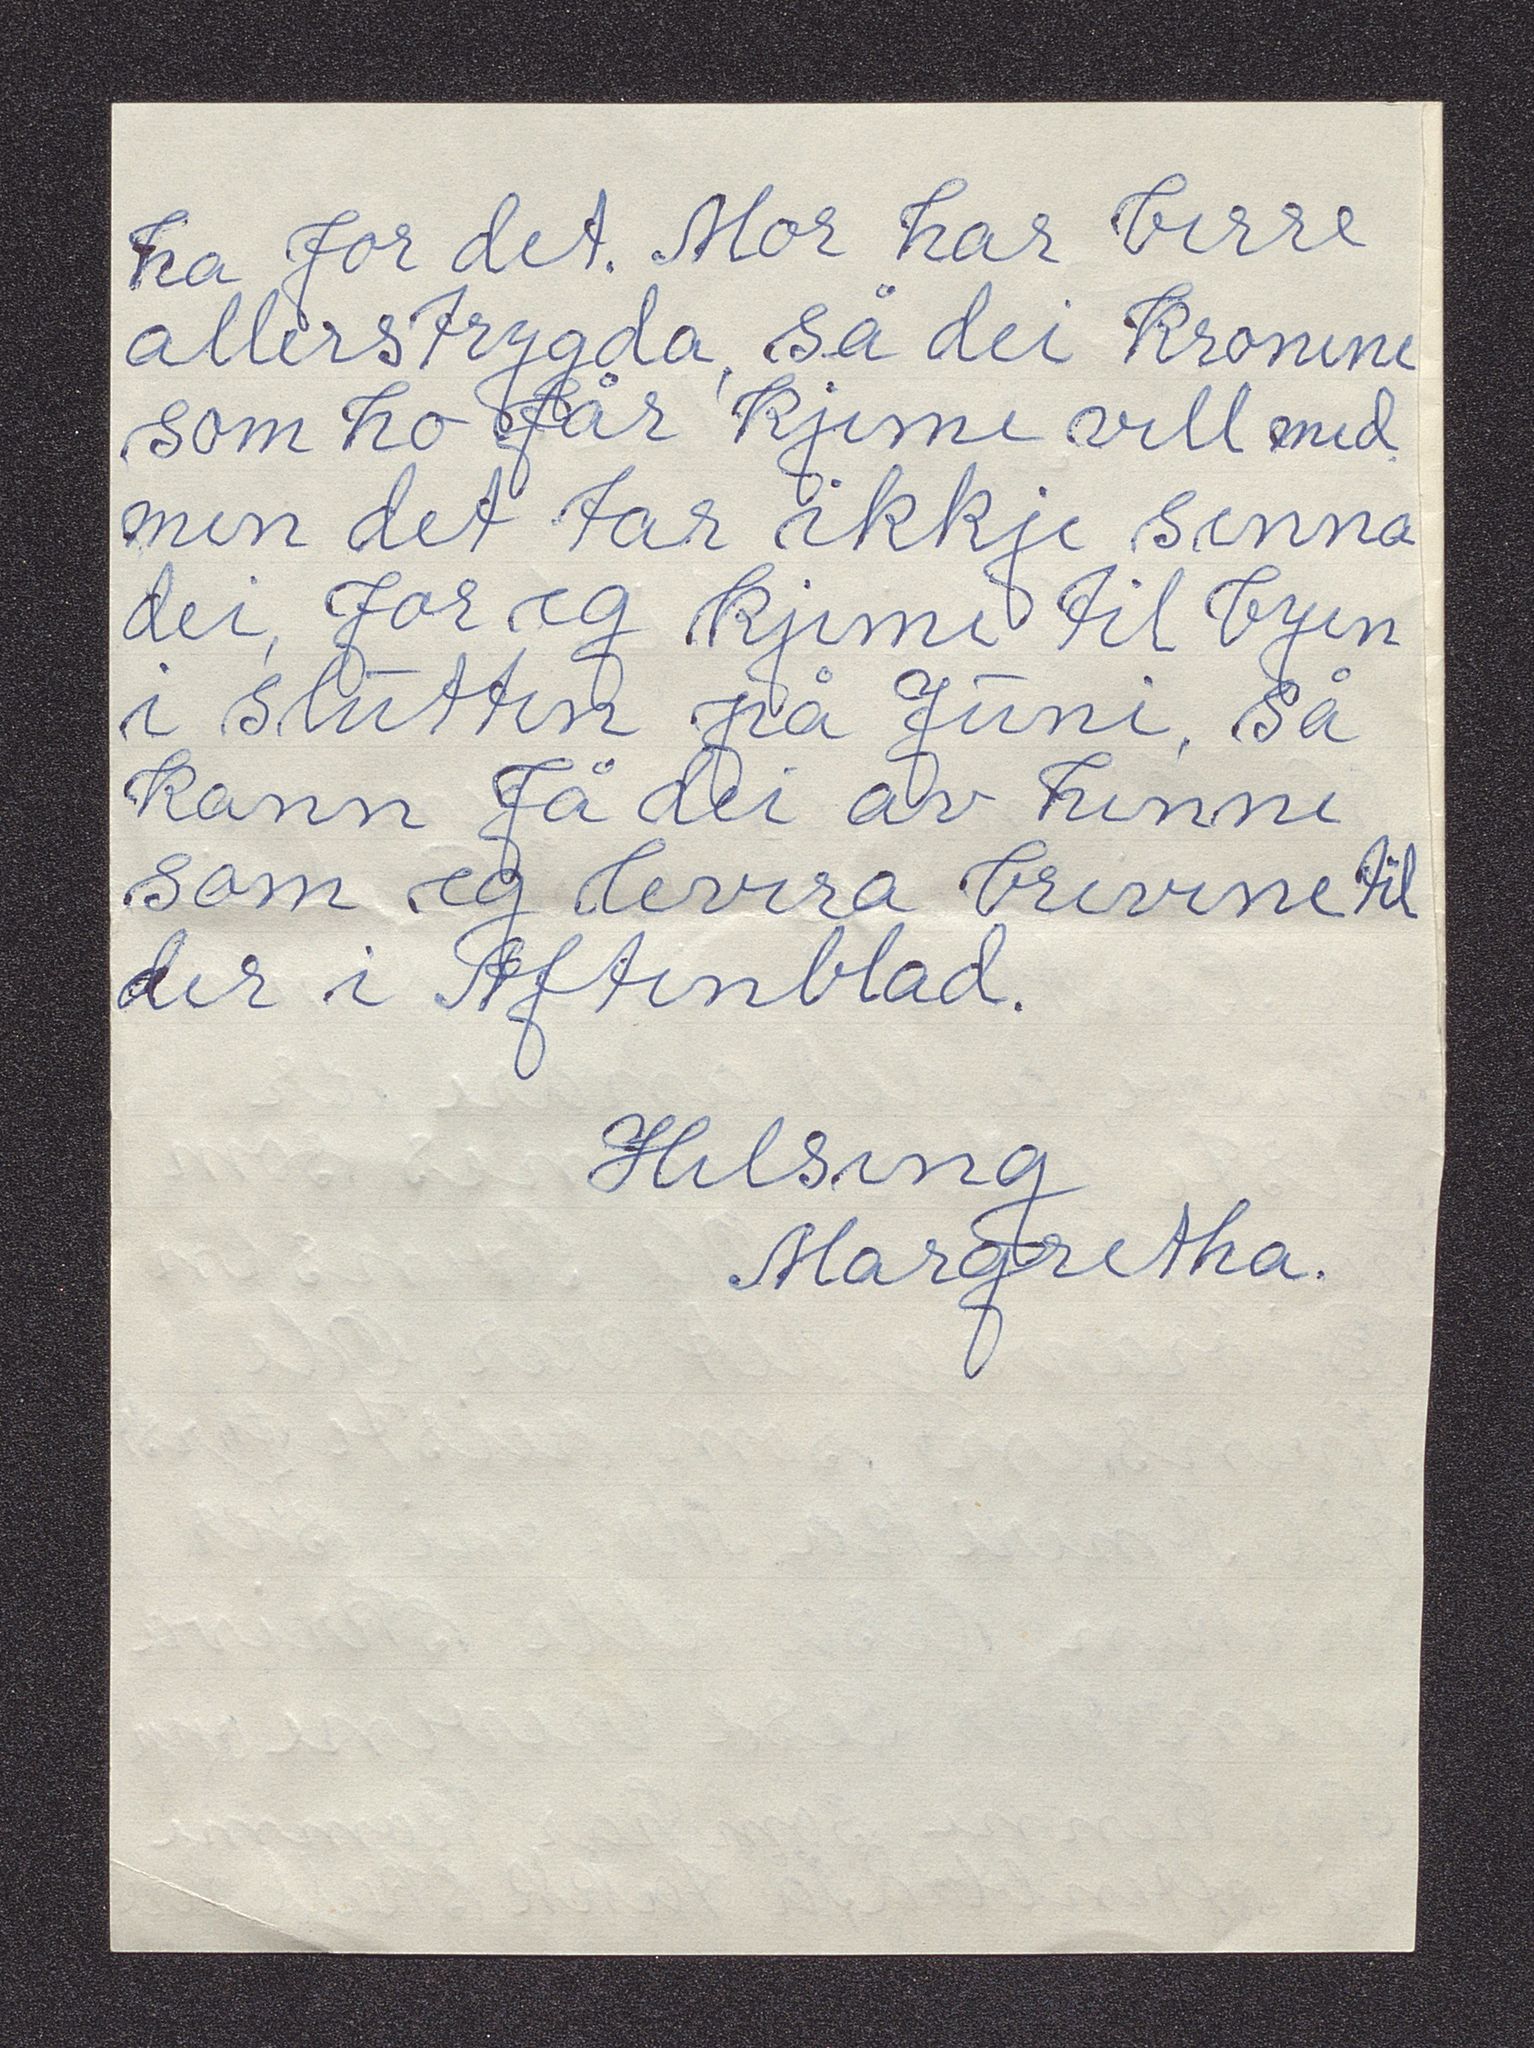 ha for det. Mor har berre
allerstrygda, så dei kronene
som ho får kjeme vell med
men det tar ikkje senna
dei, for eg kjeme til byen
i slutten på Juni, så
kann få dei av henne
som eg levera brevene til
der i Aftenblad.
Helseng
Margretha.